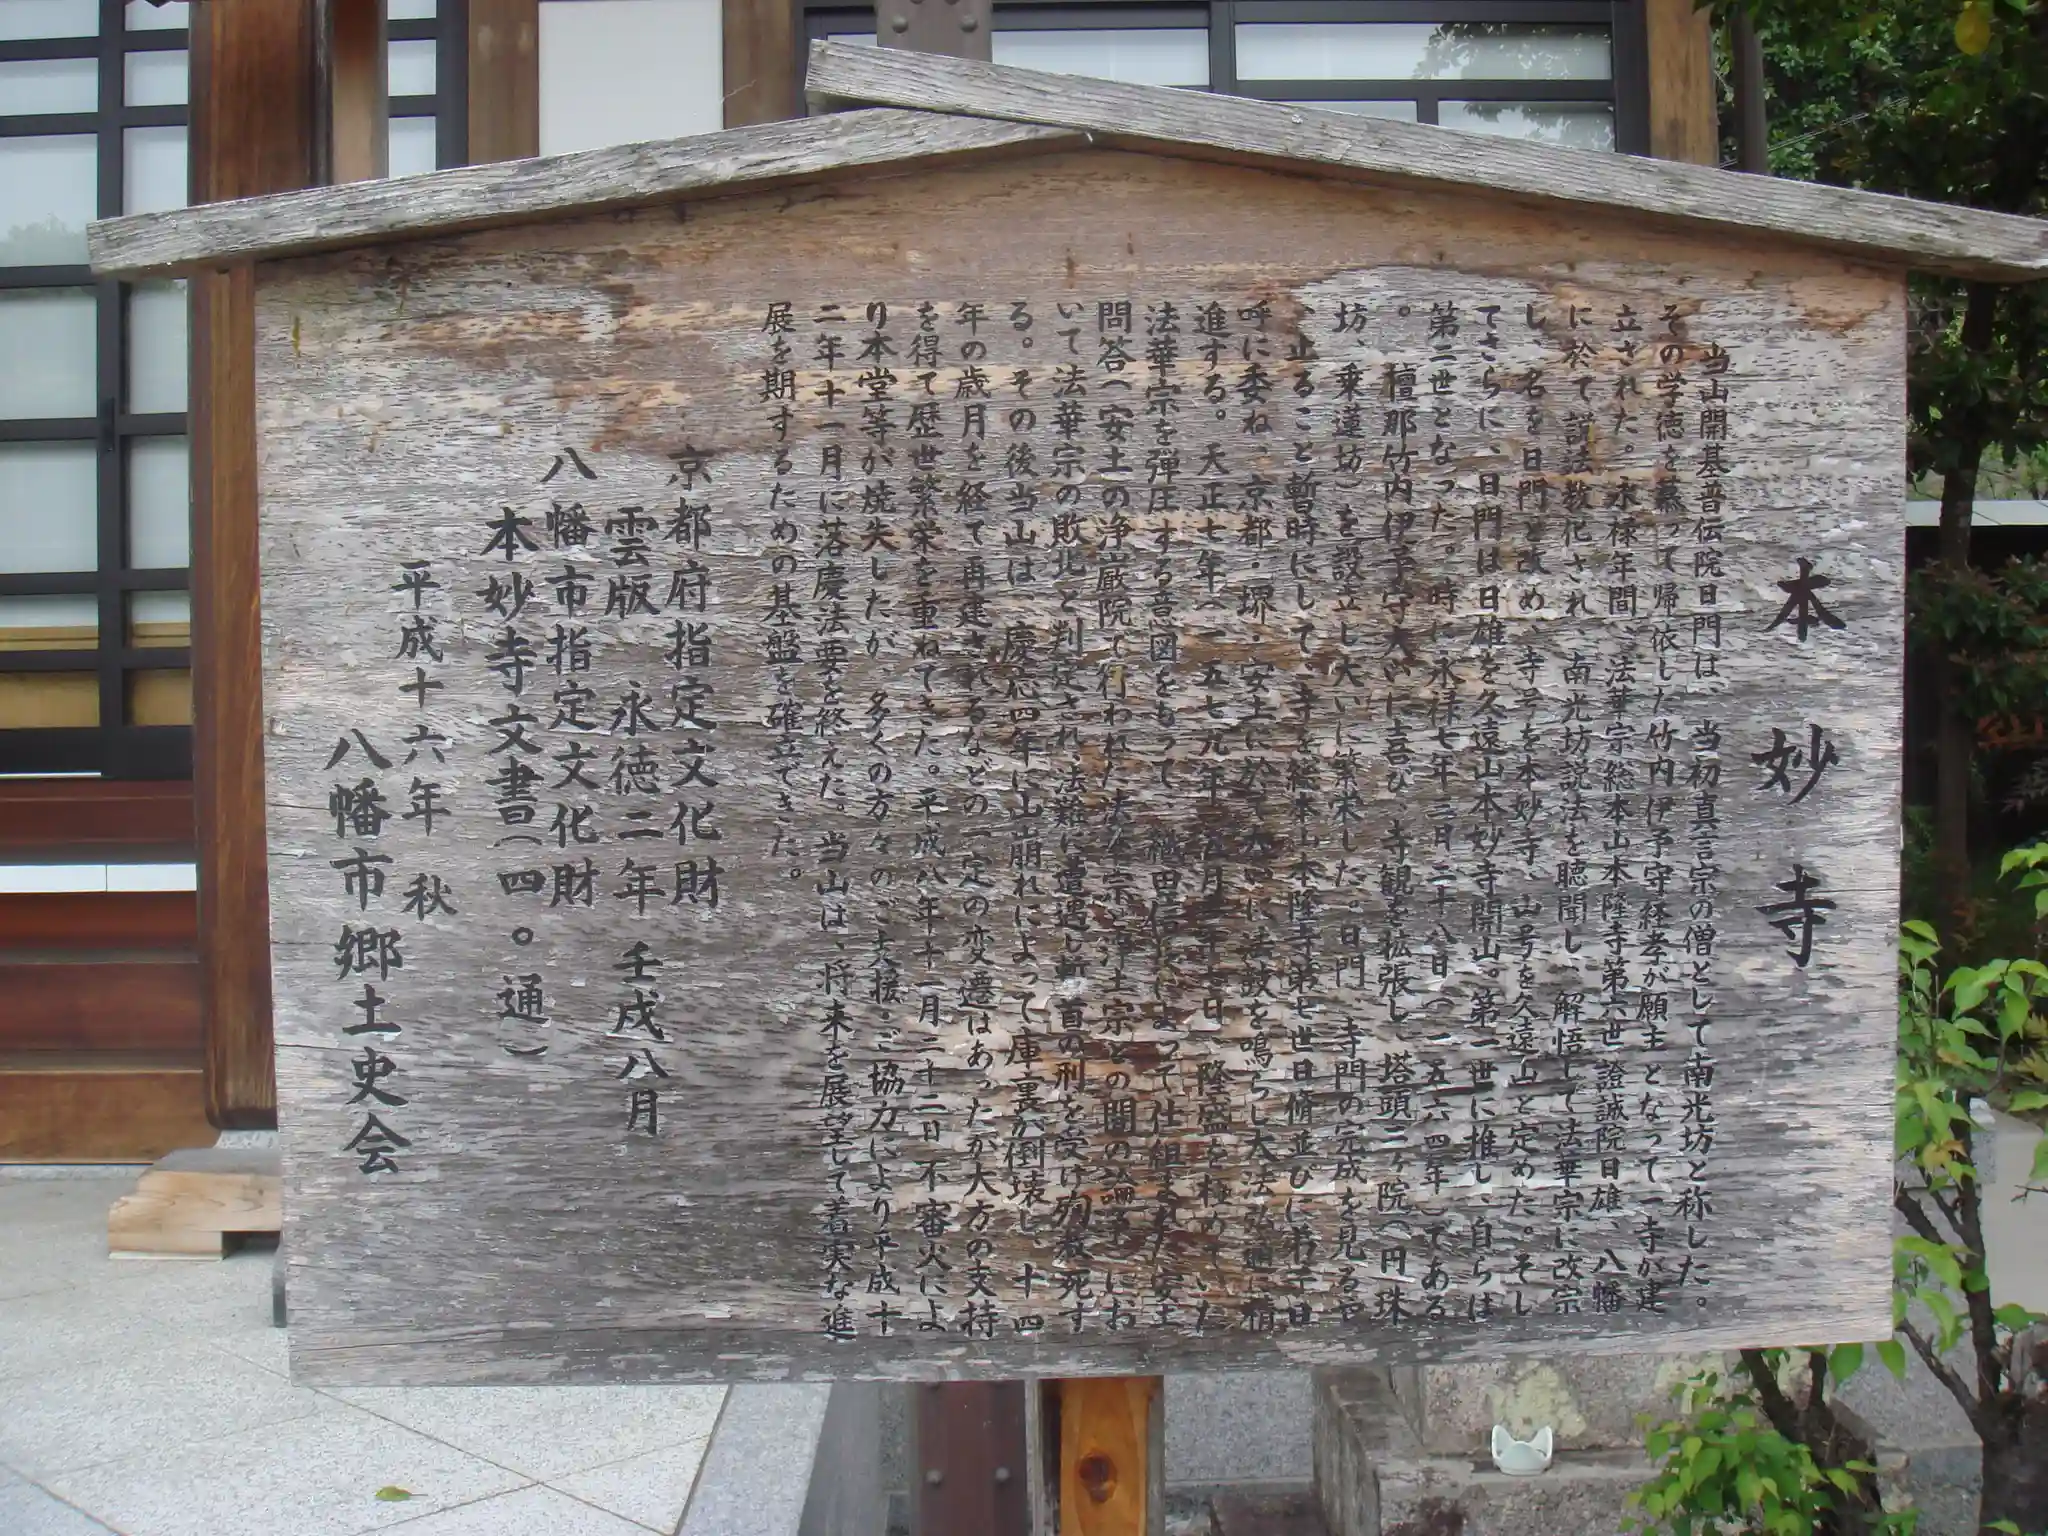 本妙寺
当山開基普伝院日門は、当初真言宗の僧として南光坊と称した。
その学徳を慕って帰依した竹内伊予守経孝が願主となって一寺が建
立された。永禄年間、法華宗総本山本隆寺第六世證誠院日雄、八幡
に於て説法教化され、南光坊説法を聴聞し、解悟して法華宗に改宗
し、名を日門と改め、寺号を本妙寺、山号を久遠山と定めた。そし
てさらに、日門は日雄を久遠山本妙寺開山。第一世に推し、自らは
第二世となった。時に永禄七年三月二十八日(一五六四年)である
。檀那竹内伊予守大いに喜び、寺観を拡張し、塔頭三ヶ院(円珠
坊、乗蓮坊)を設立し大いに繁栄した。日門、寺門の完成を見るや
、止ること暫時にして、寺を総本山本隆寺第七世日脩並びに弟子日
呼に委ね、京都・堺・安土に於て大いに法鼓を鳴らし大法弘通に精
進する。天正七年(一五七九年)五月二十七日、隆盛を極めていた
法華宗を弾圧する意図をもって、織田信長によって仕組まれた安土
問答(安土の浄厳院で行われた法華宗と浄土宗との間の論争)にお
いて法華宗の敗北と判定され、法難に遭遇し斬首の刑を受け殉教死す
る。その後当山は、慶応四年に山崩れによって庫裏が倒壊し、十四
年の歳月を経て再建されるなどの一定の変遷はあったが大方の支持
を得て歴世繁栄を重ねてきた。平成八年十一月二十二日不審火によ
り本堂等が焼失したが、多くの方々のご支援・ご協力により平成十
二年十一月に落慶法要を終えた。当山は、将来を展望して着実な進
展を期するための基盤を確立できた。
京都府指定文化財
雲版 永徳二年 壬戌八月
八幡市指定文化財
本妙寺文書(四〇通)
平成十六年 秋
八幡市郷土史会